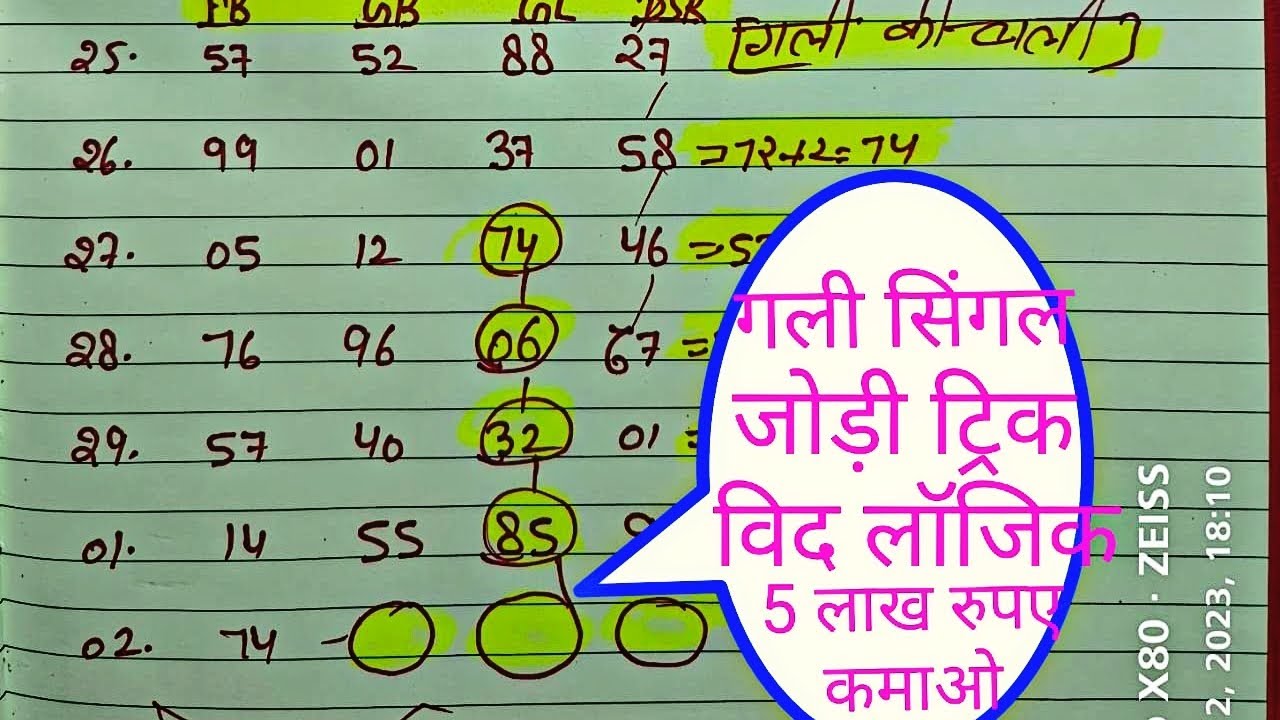 FB GB GL DSR
25. 57 52 88 27 [गली की चाली]
26. 99 01 37 58 =72+2=74
27. 05 12 74 46 =5
28. 76 96 06 67 =
29. 57 40 32 01 =
01. 14 55 85
02. 74 -
गली सिंगल
जोड़ी ट्रिक
विद लॉजिक
5 लाख रुपए
कमाओ
X80 · ZEISS
2, 2023, 18:10